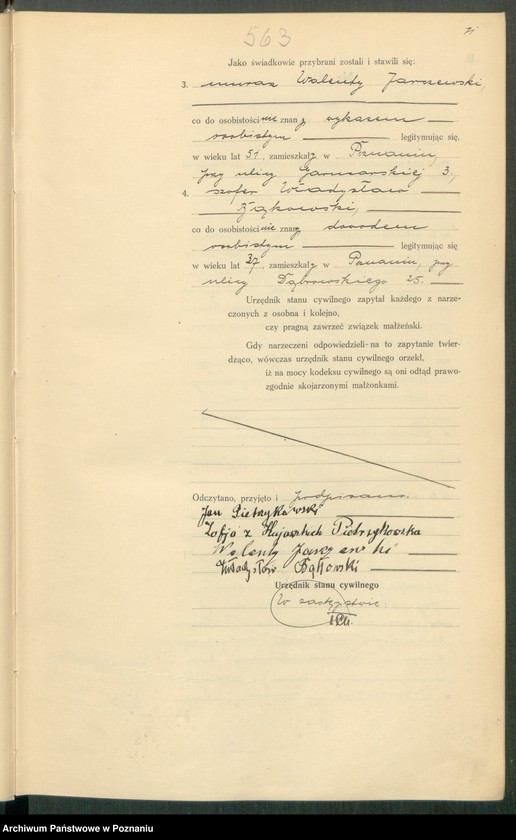 563
71
Jako świadkowie przybrani zostali i stawili się:
3. murarz Walenty Jarszewski,
co do osobistości nie znany wykazem
osobistym legitymując się,
w wieku lat 51, zamieszkały w Poznaniu,
przy ulicy Garncarskiej 3.,
4. szofer Władysław
Bąkowski,
co do osobistości nie znany dowodem
osobistym legitymując się
w wieku lat 37, zamieszkały w Poznaniu, przy
ulicy Dąbrowskiego 25.
Urzędnik stanu cywilnego zapytał każdego z narze-
czonych z osobna i kolejno,
czy pragną zawrzeć związek małżeński.
Gdy narzeczeni odpowiedzieli na to zapytanie twier-
dząco, wówczas urzędnik stanu cywilnego orzekł,
iż na mocy kodeksu cywilnego są oni odtąd prawo-
zgodnie skojarzonymi małżonkami.
Odczytano, przyjęto i podpisano.
Jan Pietrzykowski
Zofja z Pietrzykowska
Walenty Jarszewski
Władysław Bąkowski
Urzędnik stanu cywilnego
W zastępstwie:
Archiwum Państwowe w Poznaniu